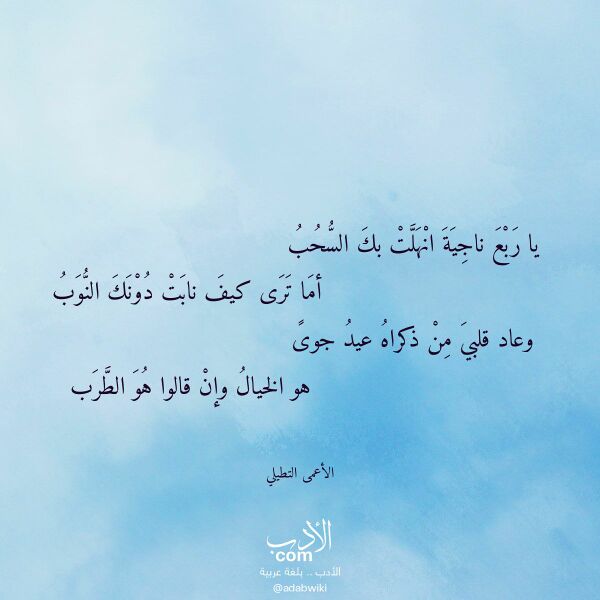 يا رَبْعَ ناجِيَةَ انْهَلَّتْ بكَ السُّحُبُ
أمَا تَرَى كيفَ نابَتْ دُوْنَكَ النُّوَبُ
وعاد قلبيَ مِنْ ذكراهُ عيدُ جوىً
هو الخيالُ وإنْ قالوا هُوَ الطَّرَب
الأعمى التطيلي
الأدب
com
الأدب .. بلغة عربية
@adabwiki